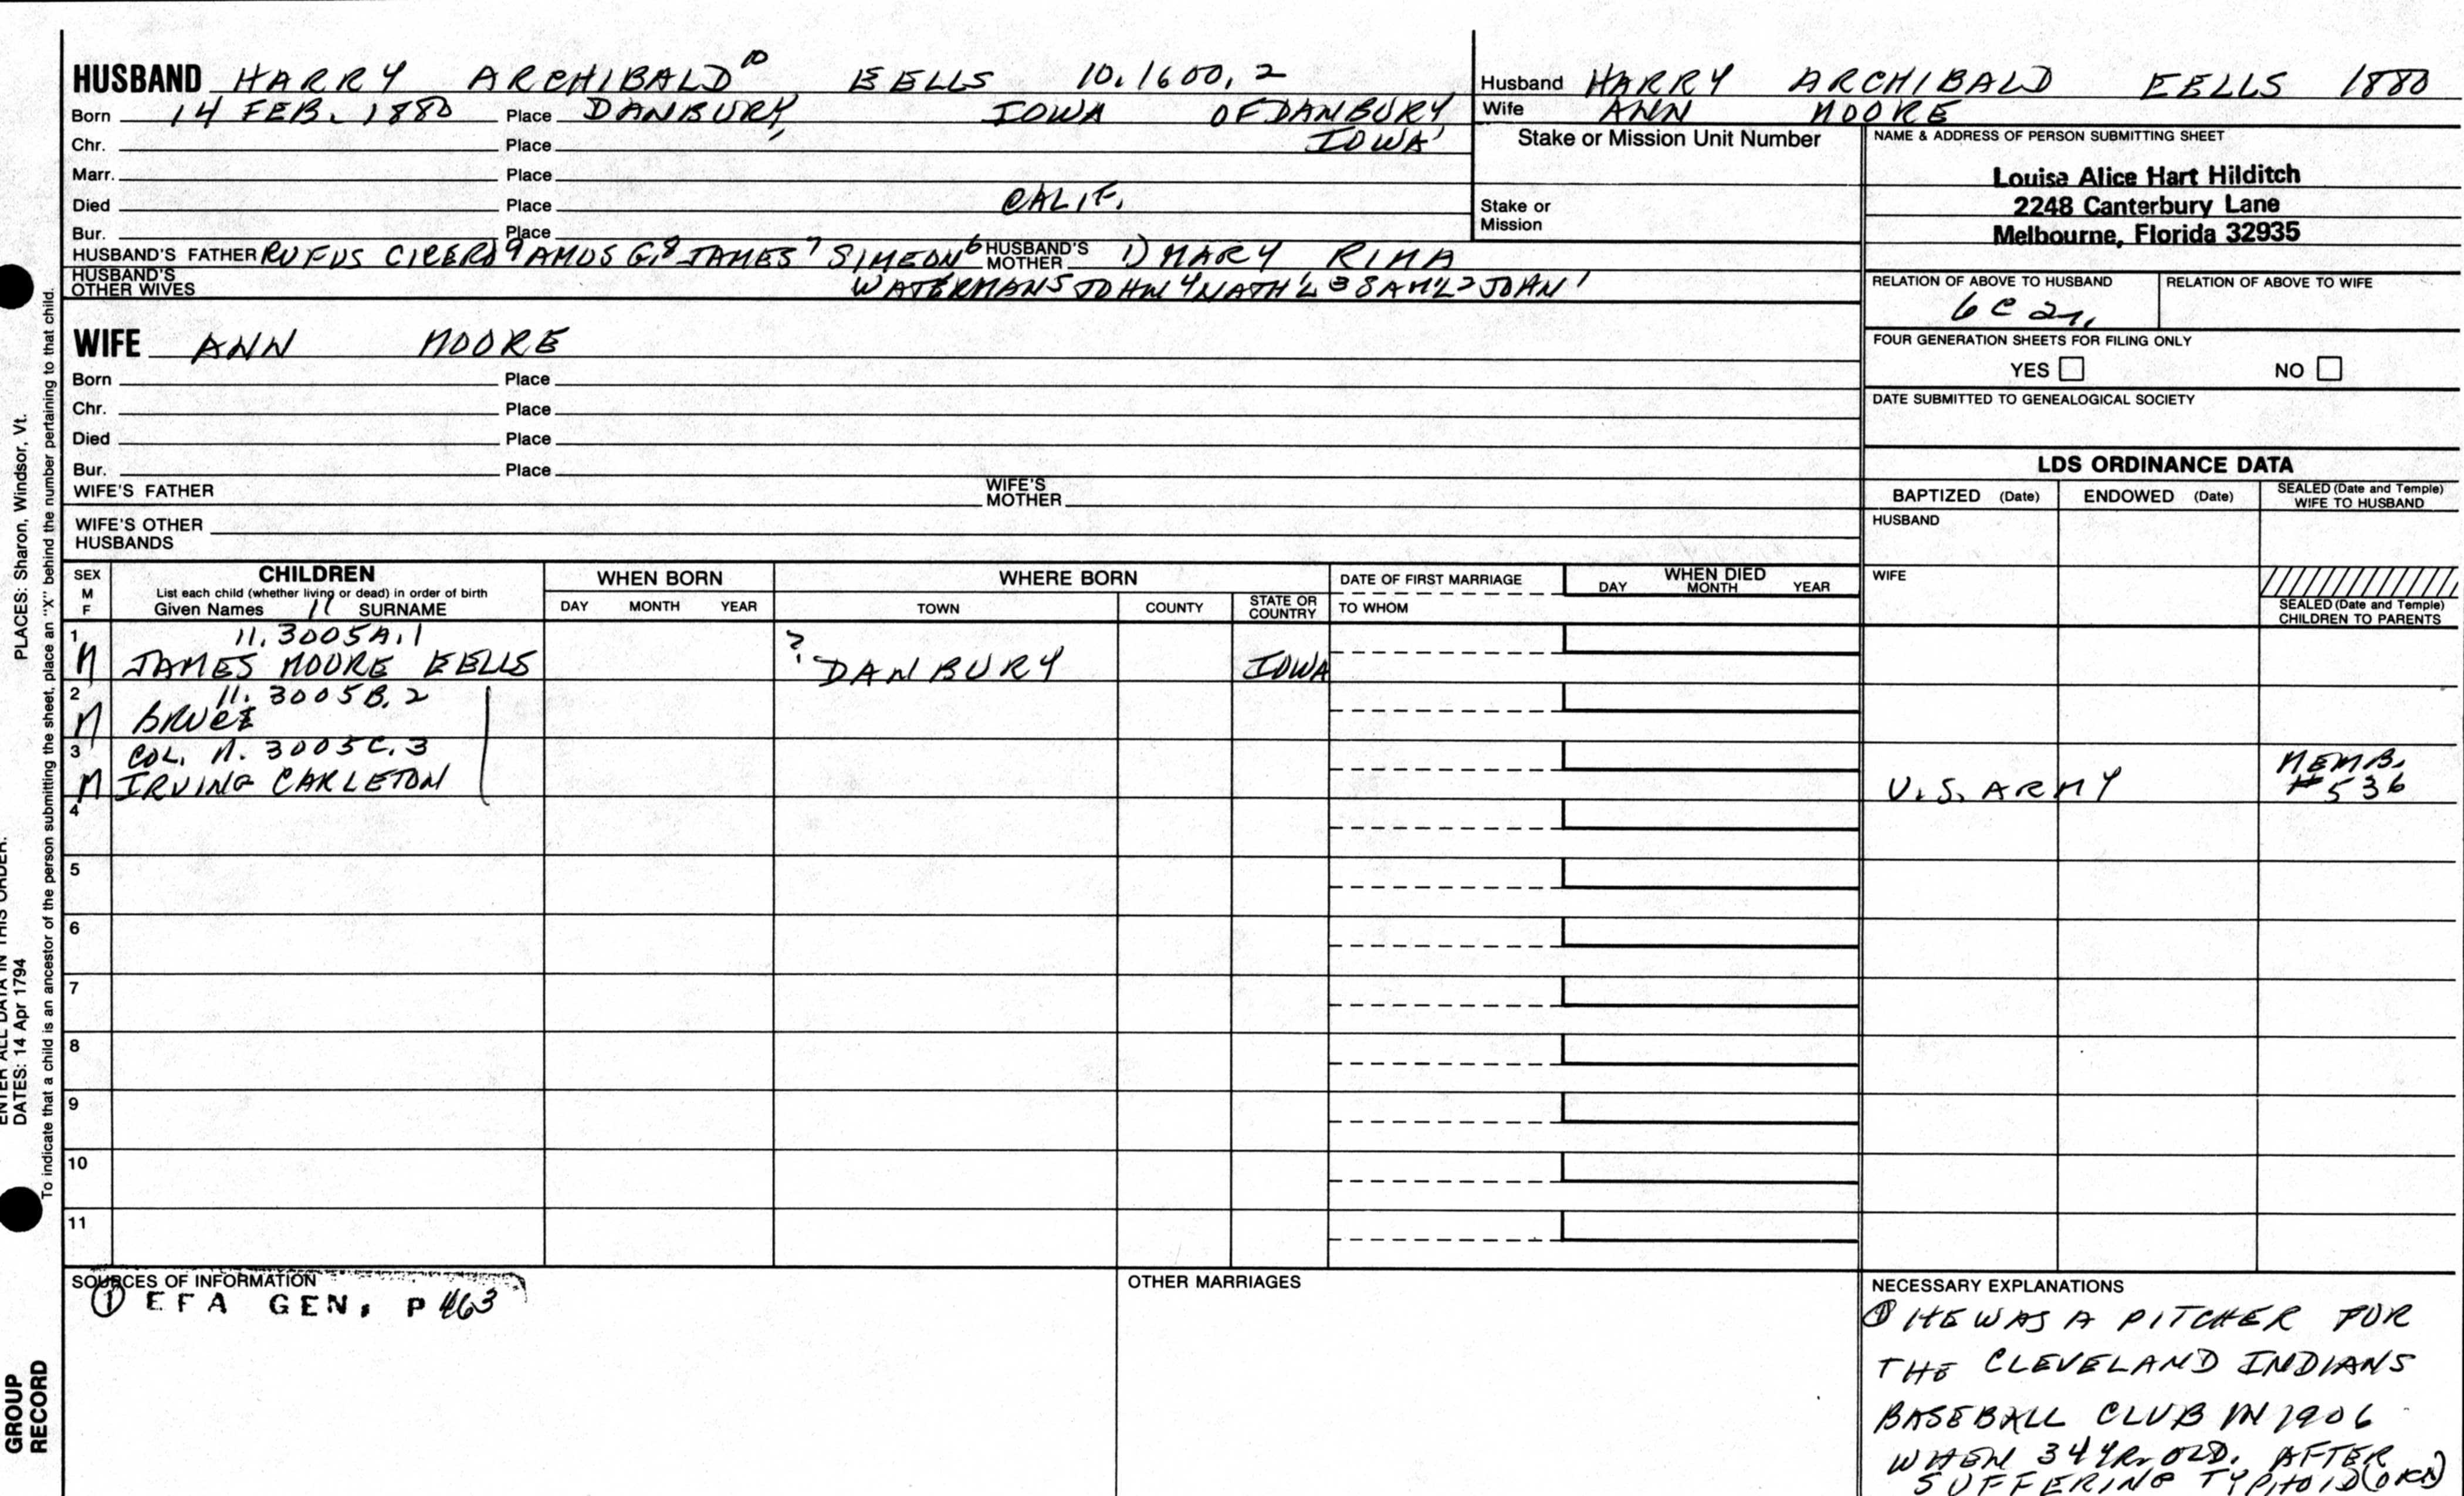 HUSBAND HARRY ARCHIBALD 10 EELLS 10.1600.2
Born 14 FEB. 1880 Place DANBURY, IOWA OF DANBURY
Chr. Place IOWA
Marr. Place
Died Place CALIF.
Bur. Place
HUSBAND'S FATHER RUFUS CICERO 9 AMOS G. 8 JAMES 7 SIMEON 6 HUSBAND'S MOTHER 1) MARY RIMA
HUSBAND'S OTHER WIVES WATERMAN 5 JOHN 4 NATH'L 3 SAM'L 2 JOHN 1
WIFE ANN MOORE
Born Place
Chr. Place
Died Place
Bur. Place
WIFE'S FATHER WIFE'S MOTHER
WIFE'S OTHER HUSBANDS
Husband HARRY ARCHIBALD EELLS 1880
Wife ANN MOORE
Stake or Mission Unit Number
Stake or
Mission
NAME & ADDRESS OF PERSON SUBMITTING SHEET
Louisa Alice Hart Hilditch
2248 Canterbury Lane
Melbourne, Florida 32935
RELATION OF ABOVE TO HUSBAND RELATION OF ABOVE TO WIFE
6C 2r.
FOUR GENERATION SHEETS FOR FILING ONLY
YES NO
DATE SUBMITTED TO GENEALOGICAL SOCIETY
LDS ORDINANCE DATA
BAPTIZED (Date) ENDOWED (Date) SEALED (Date and Temple) WIFE TO HUSBAND
HUSBAND
WIFE
SEALED (Date and Temple)
CHILDREN TO PARENTS
SEX M F CHILDREN WHEN BORN WHERE BORN DATE OF FIRST MARRIAGE WHEN DIED
List each child (whether living or dead) in order of birth
Given Names 11 SURNAME DAY MONTH YEAR TOWN COUNTY STATE OR COUNTRY TO WHOM DAY MONTH YEAR
1 11.3005A.1 ?
M JAMES MOORE EELLS DANBURY IOWA
2 11.3005B.2
M BRUCE
3 COL. 11.3005C.3 MEMB.
M IRVING CARLETON U.S. ARMY #536
4
5
6
7
8
9
10
11
SOURCES OF INFORMATION
① EFA GEN. P 463
OTHER MARRIAGES
NECESSARY EXPLANATIONS
① HE WAS A PITCHER FOR
THE CLEVELAND INDIANS
BASEBALL CLUB IN 1906
WHEN 34 YR. OLD. AFTER
SUFFERING TYPHOID
PLACES: Sharon, Windsor, Vt.
ENTER ALL DATA IN THIS ORDER:
DATES: 14 Apr 1794
To indicate that a child is an ancestor of the person submitting the sheet, place an "X" behind the number pertaining to that child.
GROUP
RECORD